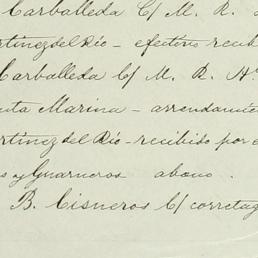 Carballeda C/ M. R.
rtinez del Rio - efectivo recib
Carballeda C/ M. R. H
nta Marina - arrendamie
rtinez del Rio - recibido por
s y Guarneros abono.
B. Cisneros C/ corretag